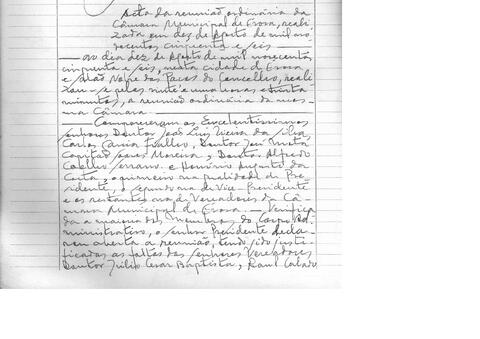 Acta da reunião ordinária da
Câmara Municipal de Évora, reali-
zada em dez de Agosto de mil no-
vecentos cinquenta e seis
Ao dia dez de Agosto de mil novecentos
cinquenta e seis, nesta cidade de Évora
e Salão Nobre dos Paços do Concelho, reali
zou-se pelas vinte e uma horas e trinta
minutos, a reunião ordinária da mes-
ma Câmara.
Compareceram os Excelentíssimos
senhores Doutor João Luis Vieira da Silva,
Carlos Garcia, Doutor José
Capitão Moreira, Doutor Alfredo
Coelho Serrano e Honório Augusto da
Costa, o primeiro na qualidade de Pre-
sidente, o segundo na de Vice-Presidente
e os restantes na de Vereadores da Câ-
mara Municipal de Évora. Verifica
da a maioria dos membros do Corpo Ad-
ministrativo, o senhor Presidente decla-
rou aberta a reunião, tendo sido justi-
ficadas as faltas dos senhores Vereadores
Doutor Júlio Cesar Baptista, Raul